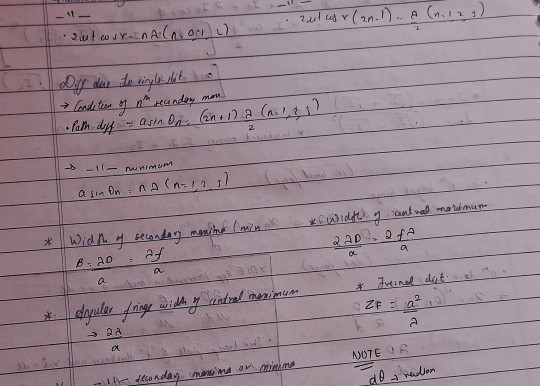 -11-
-11-
· 2ut cos r = nλ (n = 0, 1, 2)
· 2ut cos r (2n-1) λ/2 (n = 1 2 3)
Diff due to single slit
→ Condition of nth secondary max
· Path diff = a sin θn = (2n+1) λ/2 (n = 1, 2, 3)
→ -11- minimum
a sin θn = nλ (n = 1, 2, 3)
* Width of secondary maxima (min
* Width of central maximum
β = λD/a = λf/a
2λD/a = 2fλ/a
* Angular fringe width of central maximum
* Fresnel dist:
→ 2λ/a
ZF = a²/λ
-11- secondary maxima or minima
NOTE
dθ → radian